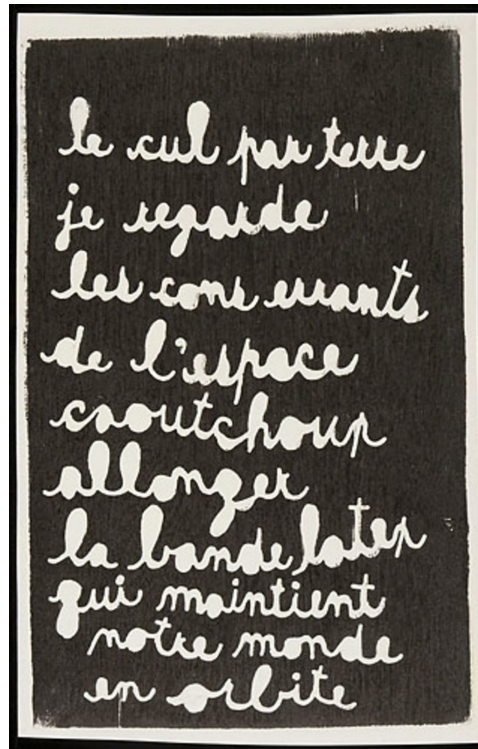 le cul par terre
je regarde
les cons errants
de l'espace
caoutchoup
allonger
la bande latex
qui maintient
notre monde
en orbite